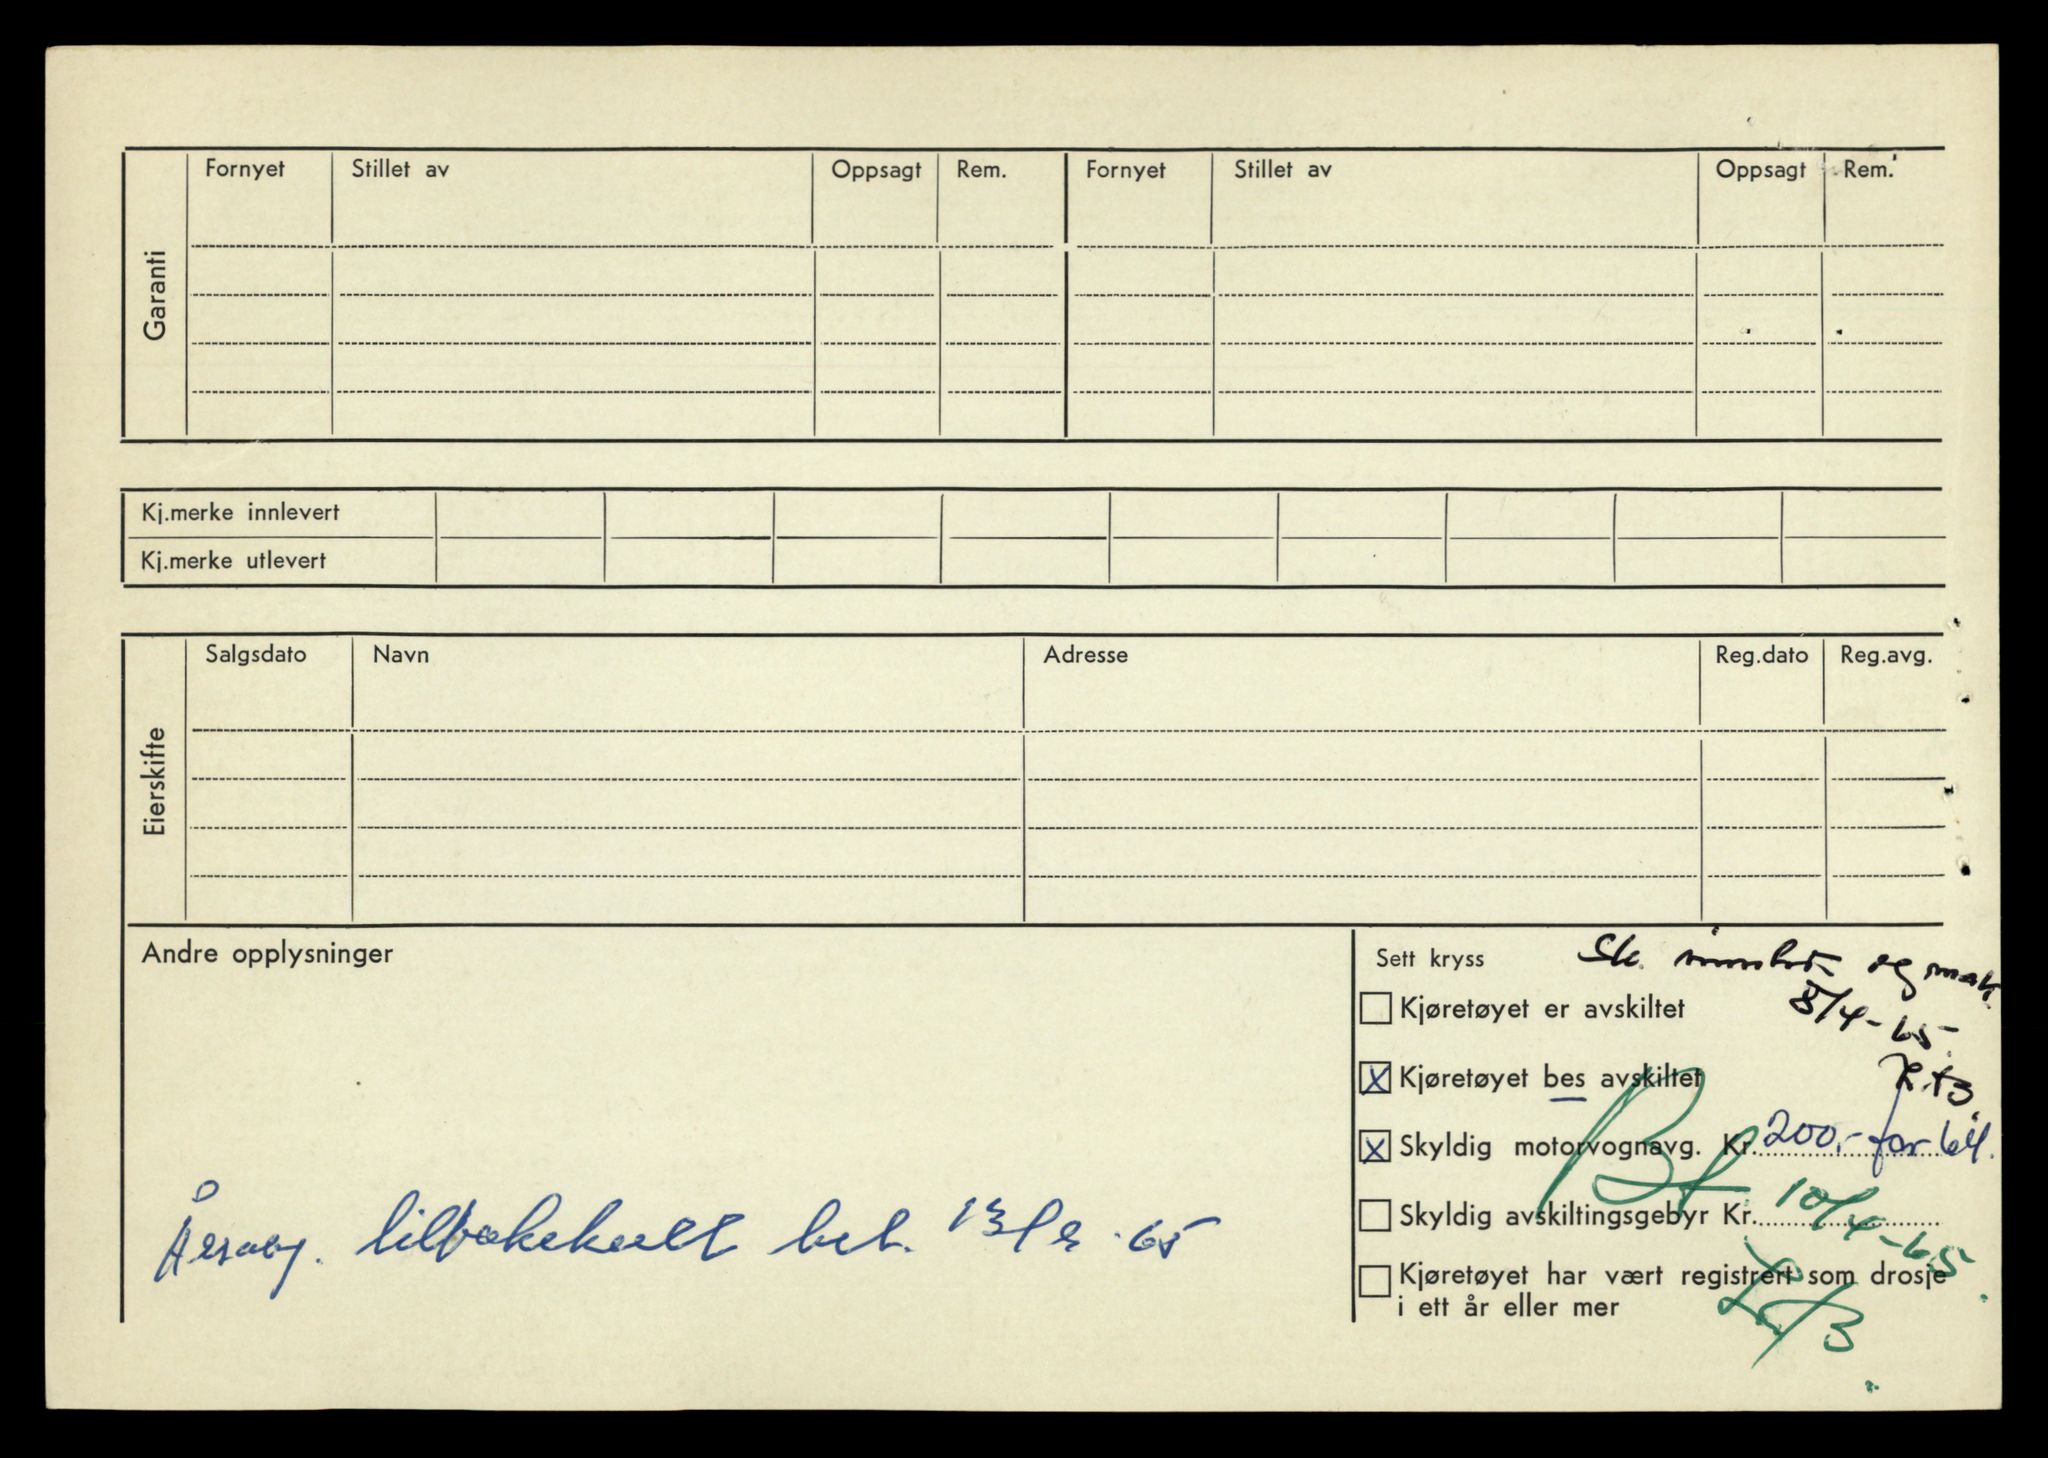 Garanti
Fornyet Stillet av Oppsagt Rem. Fornyet Stillet av Oppsagt Rem.
Kj.merke innlevert
Kj.merke utlevert
Eierskifte
Salgsdato Navn Adresse Reg.dato Reg.avg.
Andre opplysninger
tilbakekalt bet. 13/ -65
Sett kryss
Sk. og mak.
8/4-65
Kjøretøyet er avskiltet
X Kjøretøyet bes avskiltet
X Skyldig motorvognavg. Kr. 200.- for 64.
Skyldig avskiltingsgebyr Kr.
10/4-65
Kjøretøyet har vært registrert som drosje
i ett år eller mer